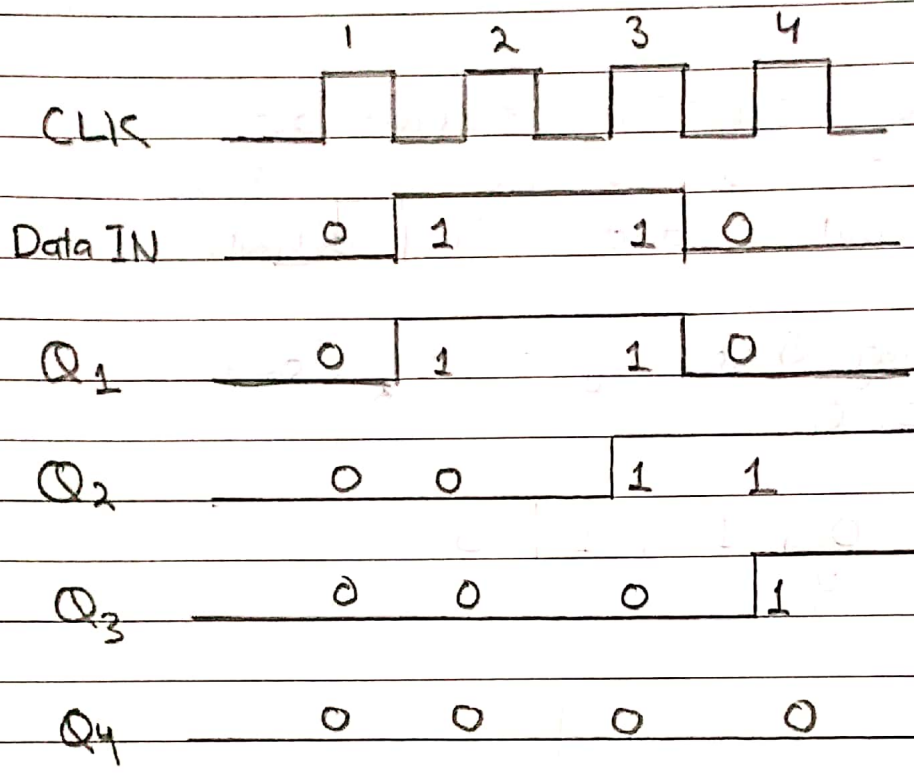 1 2 3 4
CLK
Data IN 0 1 1 0
Q1 0 1 1 0
Q2 0 0 1 1
Q3 0 0 0 1
Q4 0 0 0 0